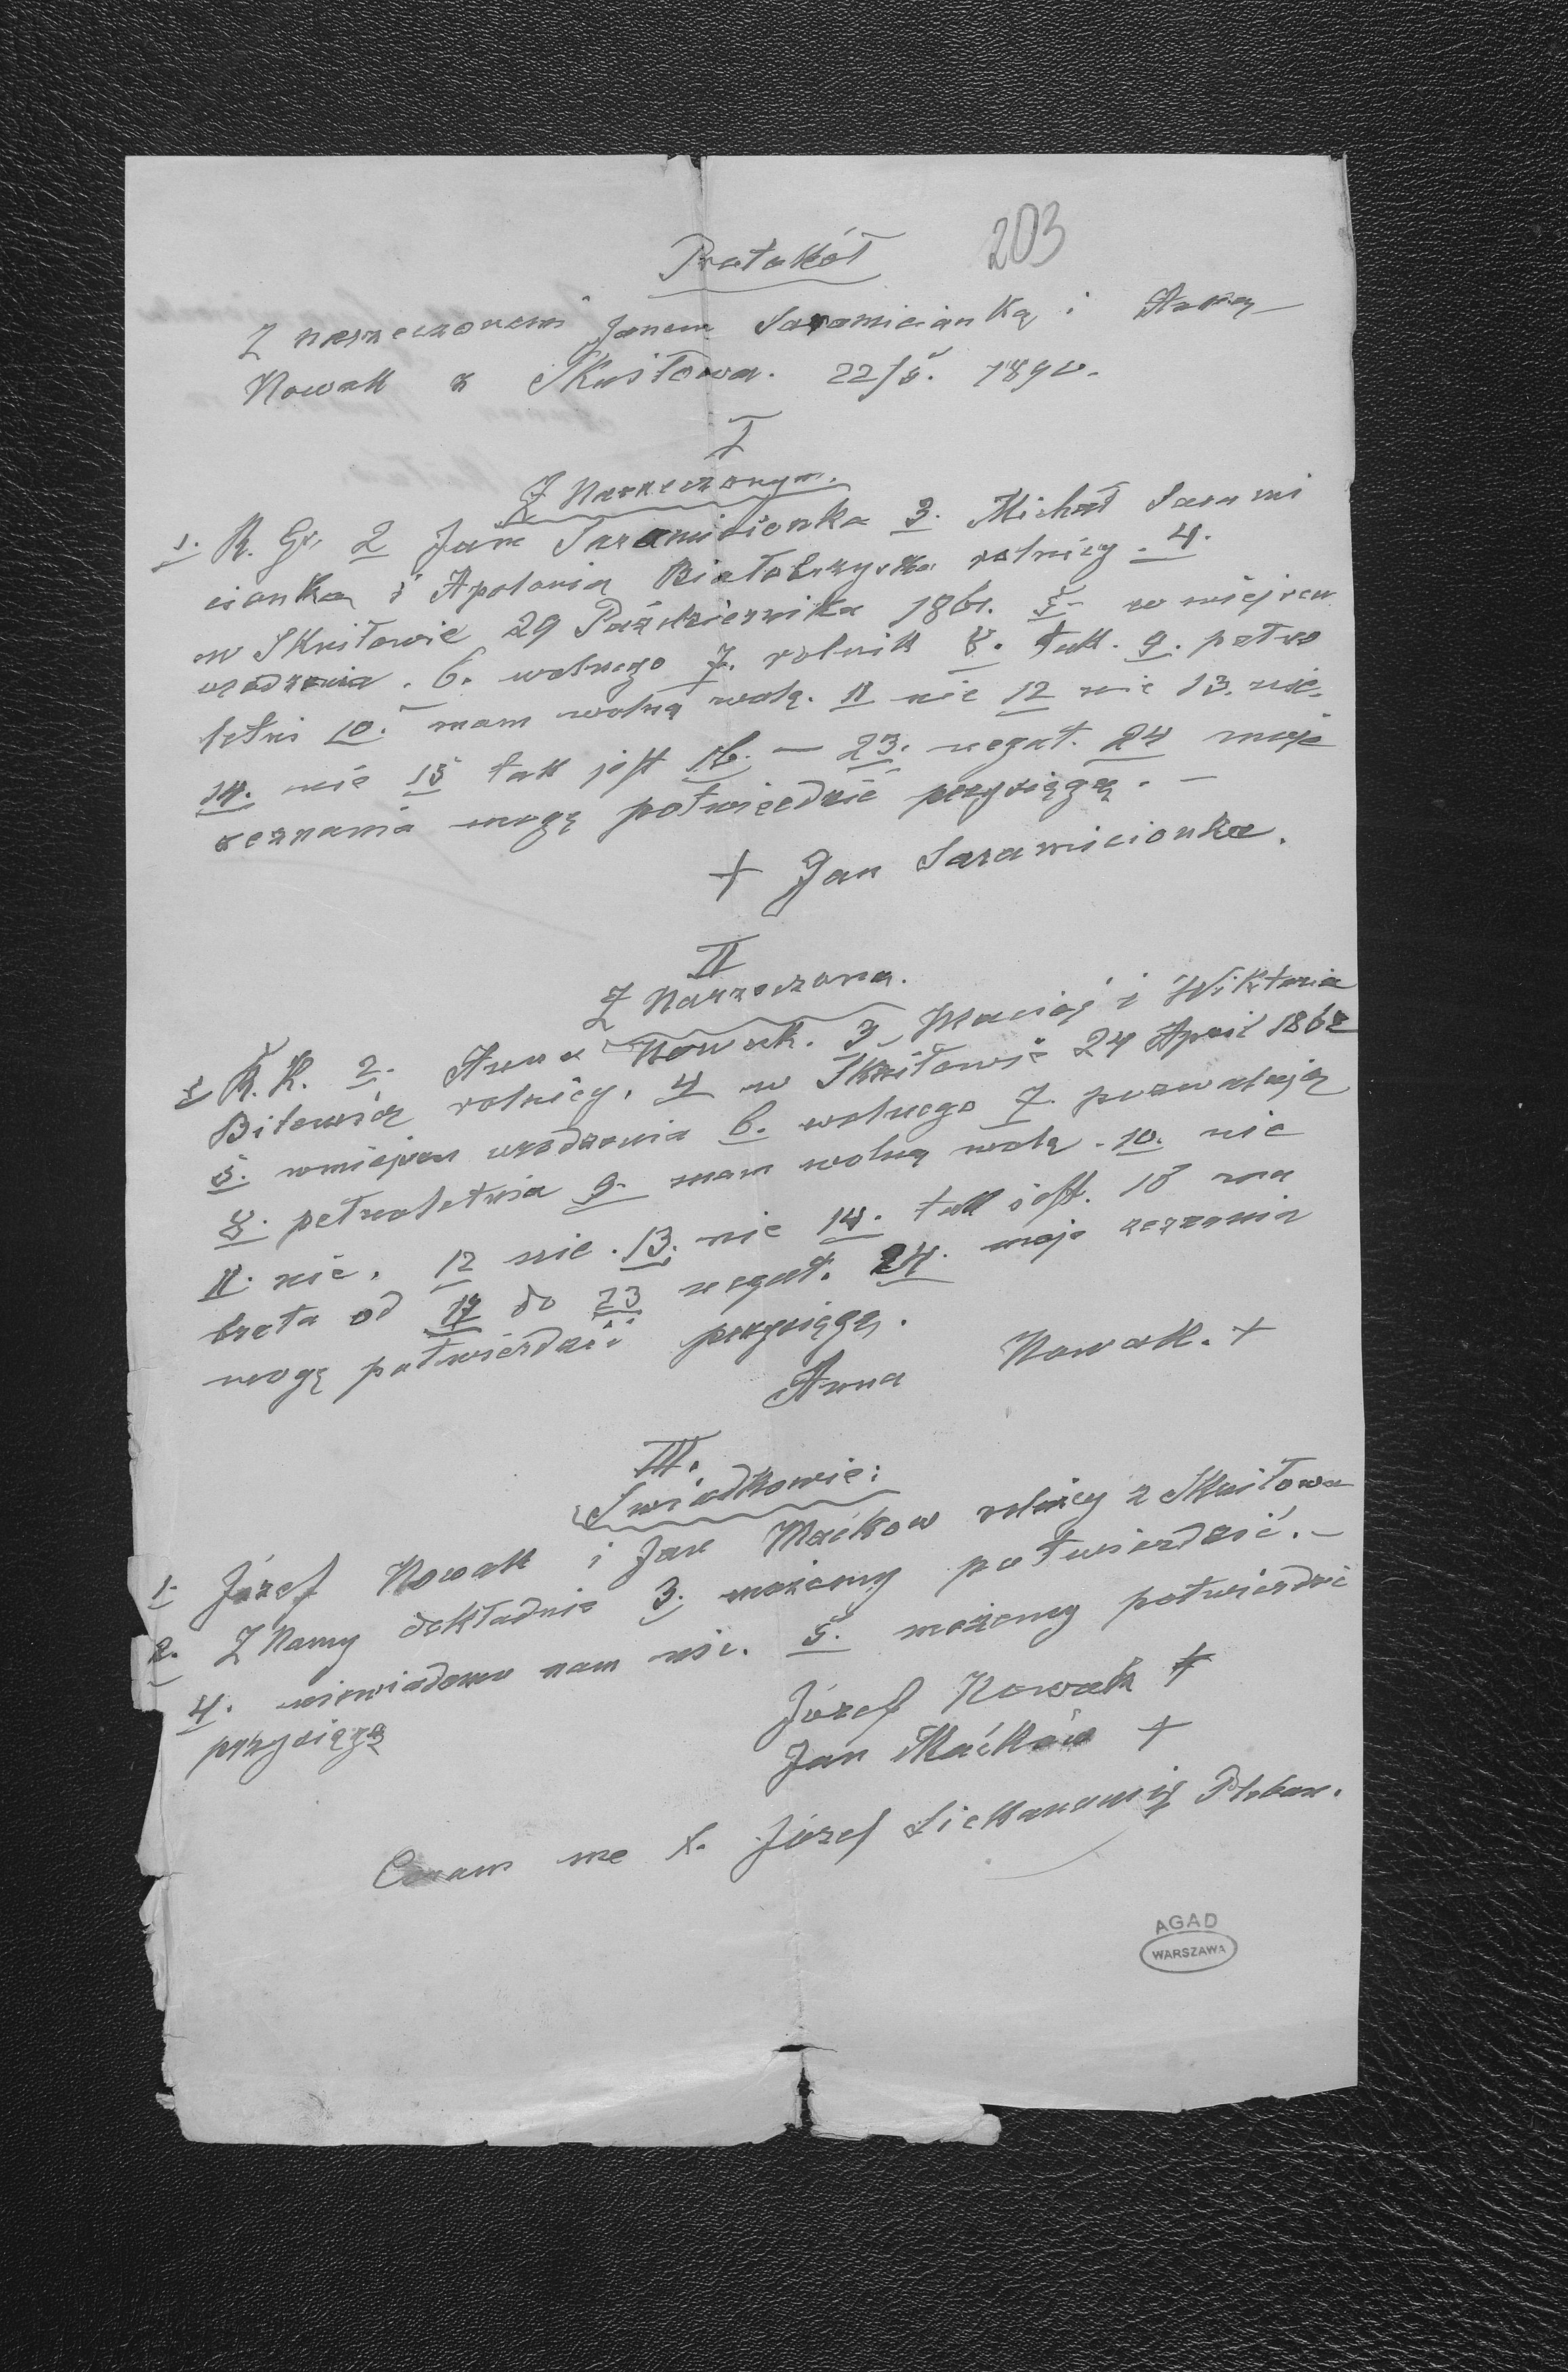 203
Protokół
Z narzeczonemi Janem Saramicianką i Anną
Nowak z Skniłowa. 22/5. 1890.
I
Z Narzeczonym.
1. R. Gr. 2 Jan Saramicionka 3. Michał Sarami
cionka i Apolonia Białobrzyska rolnicy. 4.
w Skniłowie 29 Października 1861. 5- w miejscu
urodzenia. 6. wolnego 7. rolnik 8. tak. 9. pełno
letni 10. mam wolną wolą. 11 nie 12 nie 13. nie.
14. nie 15 tak jest 16. — 23. negat. 24 moje
zeznania mogę potwierdzić przysięgą. -
+ Jan Saramicionka.
II
Z Narzeczoną.
1 R. K. 2. Anna Nowak. 3 Maciej i Wiktoria
rolnicy. 4 w Skniłowie 24 April 1862
5. w miejscu urodzenia 6. wolnego 7. pozwalają
8. pełnoletnia 9. mam wolną wolą. 10. nie
11. nie. 12 nie. 13. nie 14. tak jest. 15 ma
brata od 17 do 23 negat. 24. moje zeznania
mogę potwierdzić przysięgą.
Anna Nowak. +
III.
Swiadkowie:
1. Józef Nowak i Jan Maćkow rolnicy z Skniłowa
2. Znamy dokładnie 3. możemy potwierdzić. -
4. niewiadomo nam nic. 5. możemy potwierdzić
przysięgą
Józef Nowak +
Jan Maćków +
Coram me X. Józef Pleban.
AGAD
WARSZAWA